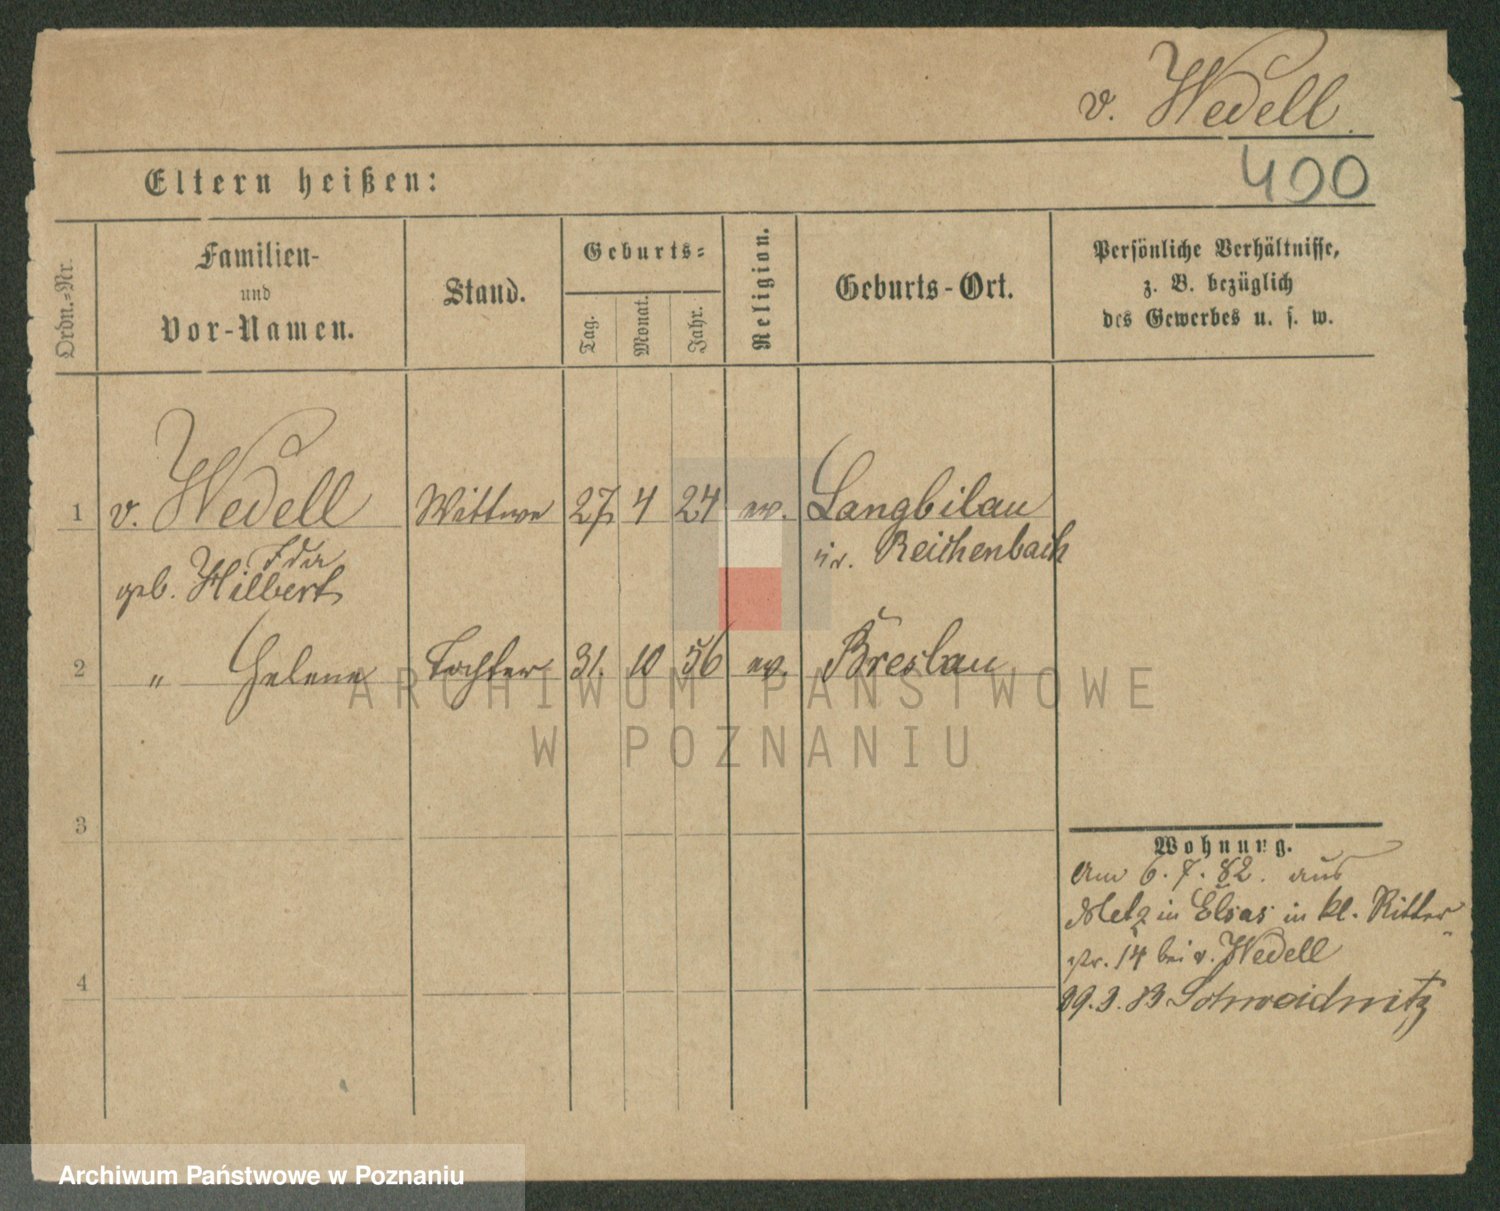 v. Wedell.
Eltern heißen:
400
Ordn.=Nr.
Familien-
und
Vor-Namen.
Stand.
Geburts=
Tag.
Monat.
Jahr.
Religion.
Geburts-Ort.
Persönliche Verhältnisse,
z. B. bezüglich
des Gewerbes u. s. w.
1 v. Wedell Wittwe 27 4 24 ev. Langbilau
Ida Reichenbach
geb. Hilbert
2 " Helene Tochter 31. 10 56 ev. Breslau
ARCHIWUM PAŃSTWOWE
W POZNANIU
3
Wohnung.
Am 6. 7. 82. aus
Metz in Elsas in kl. Ritter
str. 14 bei v. Wedell
4
29. 3. 83 Schweidnitz
Archiwum Państwowe w Poznaniu